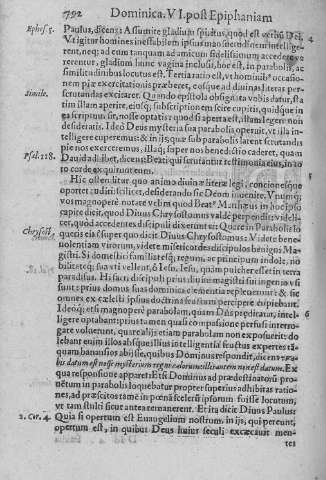 792 Dominica. VI. post Epiphaniam
Ephes 5. Paulus, dicens: Assumite gladium spiritus, quod est verbũ Dei.
Vt igitur homines inestibilem ipsius mansuetudinem intellige-
rent, neq; ad eum tanquam ad amicum fidelissimum accedere ve
rerentur, gladium hunc vagina inclusit, hoc est, in parabolis, ac
similitudinibus locutus est. Tertia ratio est, vt hominibus occasio-
nem piæ exercitationis præberet, eosque ad diuinas literas per-
Simile. scrutandas excitaret. Quando epistola obsignata vobis datur, sta
tim illam aperire, eiusq; subscriptionem scire cupitis, quidque in
ea scriptum sit, nosse optatis: quod si aperta est, illam legere non
desideratis. Ideò Deus mysteria sua parabolis operuit, vt illa in-
telligere cuperemus: & in ijs, quæ sub parabolis latent scrutandis
pie nos exerceremus, illaq; sæpe nos benedictio caderet, quam
Psal. 118. Dauid addidit, dicens: Beati qui scrutantur testimonia eius, in to
to corde exquirunt eum.
Hic ostenditur quo animo diuinæ literæ legi, concionesque
oportet audiri: scilicet, desiderando se Deum inuenire. Vnum
vos magnopere notare velim quod
capite dicit, quod Diuus Chrysostomus valdè perpendit: videli-
cet, quod accedentes discipuli dixerunt ei: Quare in Parabolis lo-
Chrysost. queris eis? super quo dicit Diuus Chrysostomus: Videte bene-
uolentiam virorum, videte misericordes discipulos benigni Ma-
gistri. Si domestici familiæ essẽt, regum, ac principum indole, no
bilitateq; sua vti vellent, ô Iesu, Iesu, quàm pulcher esset in terra
paradisus. Hi sancti discipuli pueri diuini magistri sui ingenio vsi
sunt: prius domus suas dominica clementia repleuerunt: & sic
omnes ex cælesti ipsius doctrina fructum percipere cupiebant.
Ideoq; etsi magnopere parabolam, quam Dñs prędicatur, intel-
ligere optabant: prius tamen qualis compassione perfusi interro-
gare voluerunt, quare alijs etiam parabolam non exposuerit: do
lebant enim illos absque illius intelligentia fructus expertes tã-
quam bananios abijsse, quibus Dominus respondit, dicens: Vo-
bis datum est nosse mysterium regni cælorum: illis autem non est datum. Ex
qua responsione apparet: Etsi Dominus ad prædestinatorũ pro-
uẽtum in parabolis loquebatur propter superius adhibitas ratio-
nes, ad præscitos tamẽ in pœnã scelerũ ipsorum fuisse locutum,
vt tam stulti sicut antea remanerent. Et ita dicit Diuus Paulus:
2. Cor. 4. Quia si opertum est Euangelium nostrum, in ijs, qui pereunt,
opertum est, in quibus Deus huius seculi excæcauit men-
tes